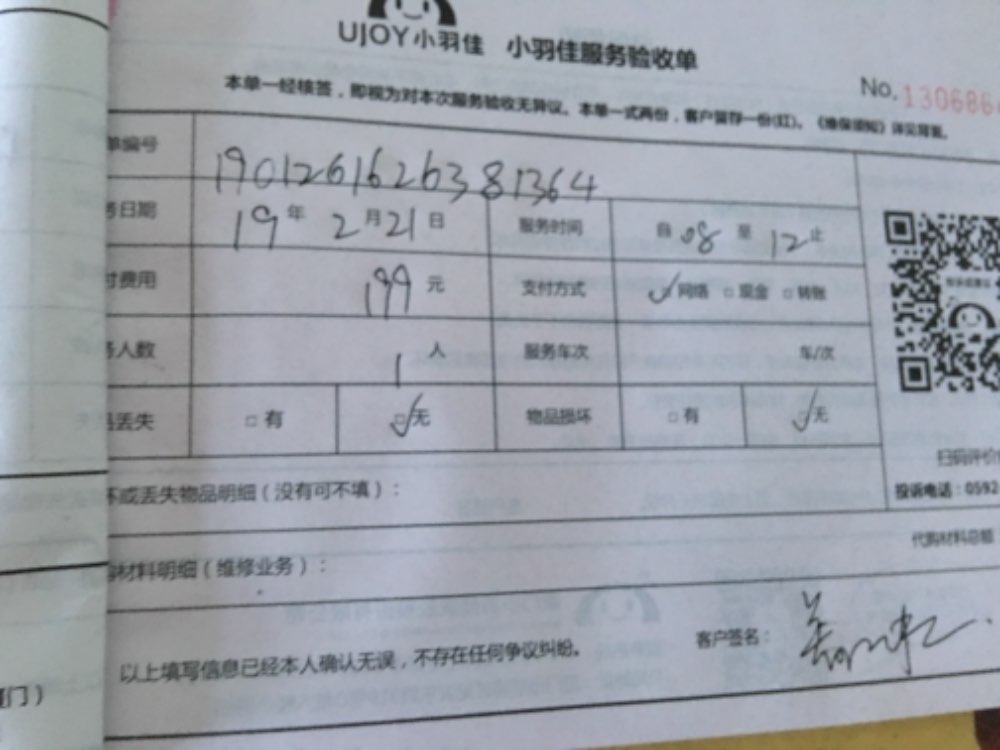 UJOY小羽佳 小羽佳服务验收单
本单一经核签，即视为对本次服务验收无异议。本单一式两份，客户留存一份(红)。《维保须知》详见背面。
No. 130686
单编号 190126162638 1364
务日期 19年 2月21日 服务时间 自 08 至 12 止
付费用 199 元 支付方式 ☑网络 □现金 □转账
务人数 1 人 服务车次 车/次
品丢失 □有 ☑无 物品损坏 □有 ☑无
扫码评价
投诉电话：0592
坏或丢失物品明细（没有可不填）：
代购材料总额
购材料明细（维修业务）：
以上填写信息已经本人确认无误，不存在任何争议纠纷。 客户签名：
门）